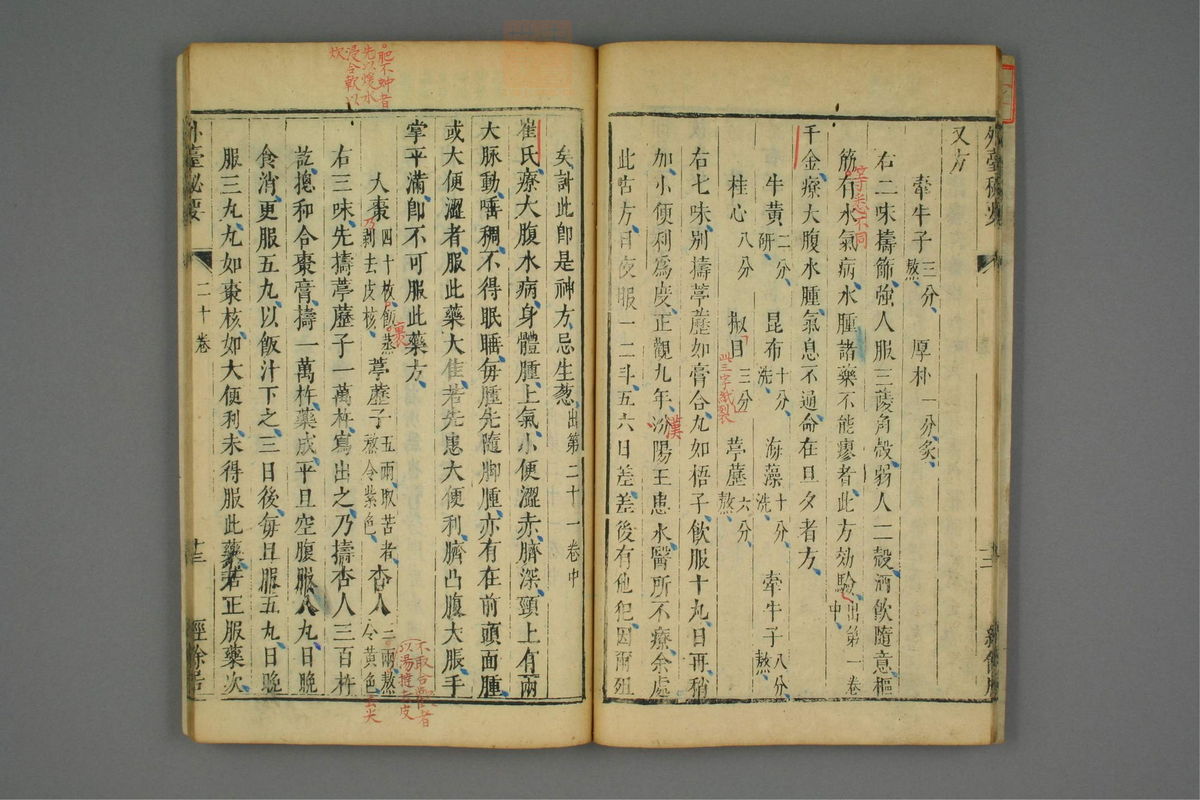 外臺秘要
又方
牽牛子三分熬 厚朴一分炙
右二味擣篩強人服三菱角殼弱人二殼酒飲隨意樞
筋有水氣病水腫諸藥不能瘳者此方効驗出第一卷中
千金療大腹水腫氣息不通命在旦夕者方
牛黃二分研 昆布十分洗 海藻十分洗 牽牛子八分熬
桂心八分 椒目三分 葶藶六分熬
右七味別擣葶藶如膏合丸如梧子飲服十丸日再稍
加小便利爲度正觀九年汾陽王患水醫所不療余處
此古方日夜服一二斗五六日差差後有他犯因爾殂
等悉不同
此三字紙裂
漢
矣計此即是神方忌生葱出第二十一卷中
崔氏療大腹水病身體腫上氣小便澀赤臍深頸上有兩
大脉動唶稠不得眠睡每腫先隨脚腫亦有在前頭面腫
或大便澀者服此藥大佳若先患大便利臍凸腹大脹手
掌平滿卽不可服此藥方
大棗四十枚飯蒸剥去皮核 葶藶子五兩取苦者熬令紫色 杏人二兩熬令黃色
右三味先擣葶藶子一萬杵寫出之乃擣杏人三百杵
訖摠和合棗膏擣一萬杵藥成平旦空腹服八丸日晚
食消更服五丸以飯汁下之三日後每旦服五丸日晚
服三丸丸如棗核如大便利未得服此藥若正服藥次
外臺秘要 二十卷 十三 經餘居
肥不䖝者
先以煖水
浸令軟以
炊
乃
裹
去尖
不取合
以湯揰去皮